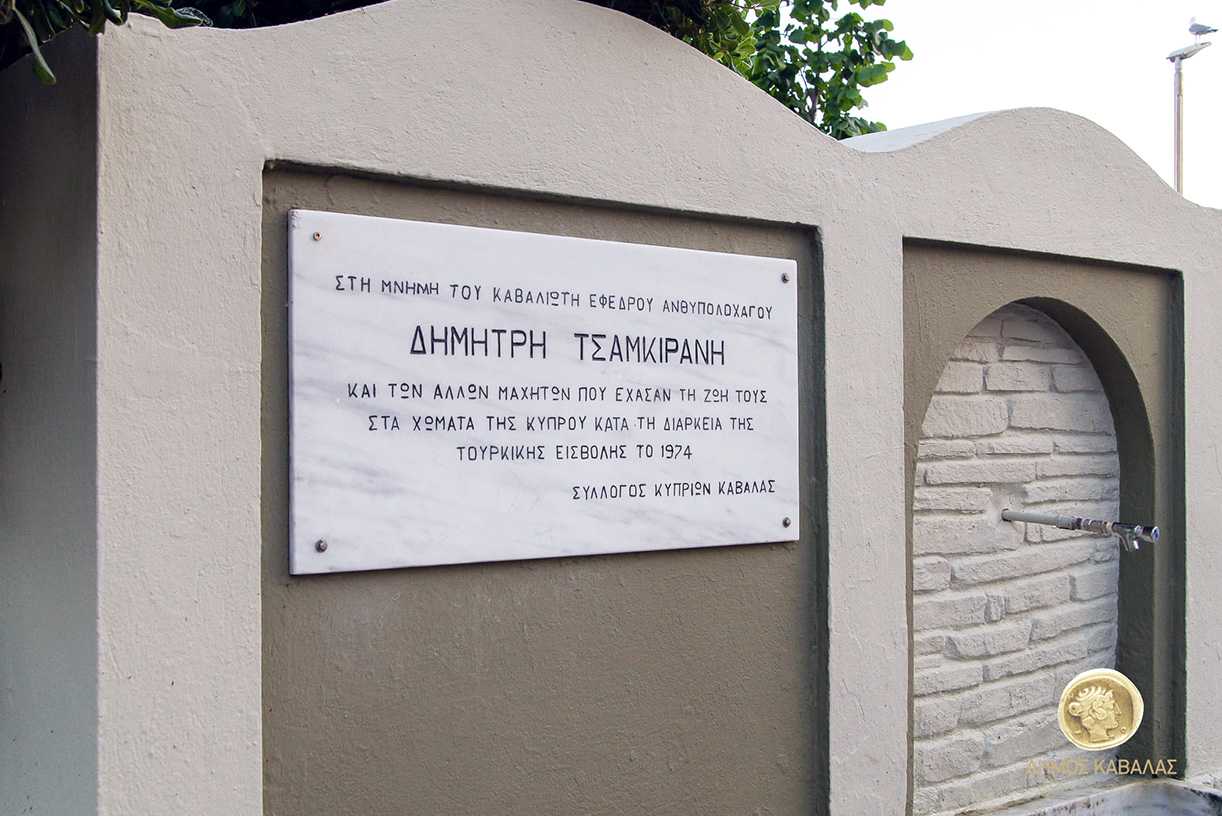 ΣΤΗ ΜΝΗΜΗ ΤΟΥ ΚΑΒΑΛΙΩΤΗ ΕΦΕΔΡΟΥ ΑΝΘΥΠΟΛΟΧΑΓΟΥ
ΔΗΜΗΤΡΗ ΤΣΑΜΚΙΡΑΝΗ
ΚΑΙ ΤΩΝ ΑΛΛΩΝ ΜΑΧΗΤΩΝ ΠΟΥ ΕΧΑΣΑΝ ΤΗ ΖΩΗ ΤΟΥΣ
ΣΤΑ ΧΩΜΑΤΑ ΤΗΣ ΚΥΠΡΟΥ ΚΑΤΑ ΤΗ ΔΙΑΡΚΕΙΑ ΤΗΣ
ΤΟΥΡΚΙΚΗΣ ΕΙΣΒΟΛΗΣ ΤΟ 1974
ΣΥΛΛΟΓΟΣ ΚΥΠΡΙΩΝ ΚΑΒΑΛΑΣ
ΔΗΜΟΣ ΚΑΒΑΛΑΣ